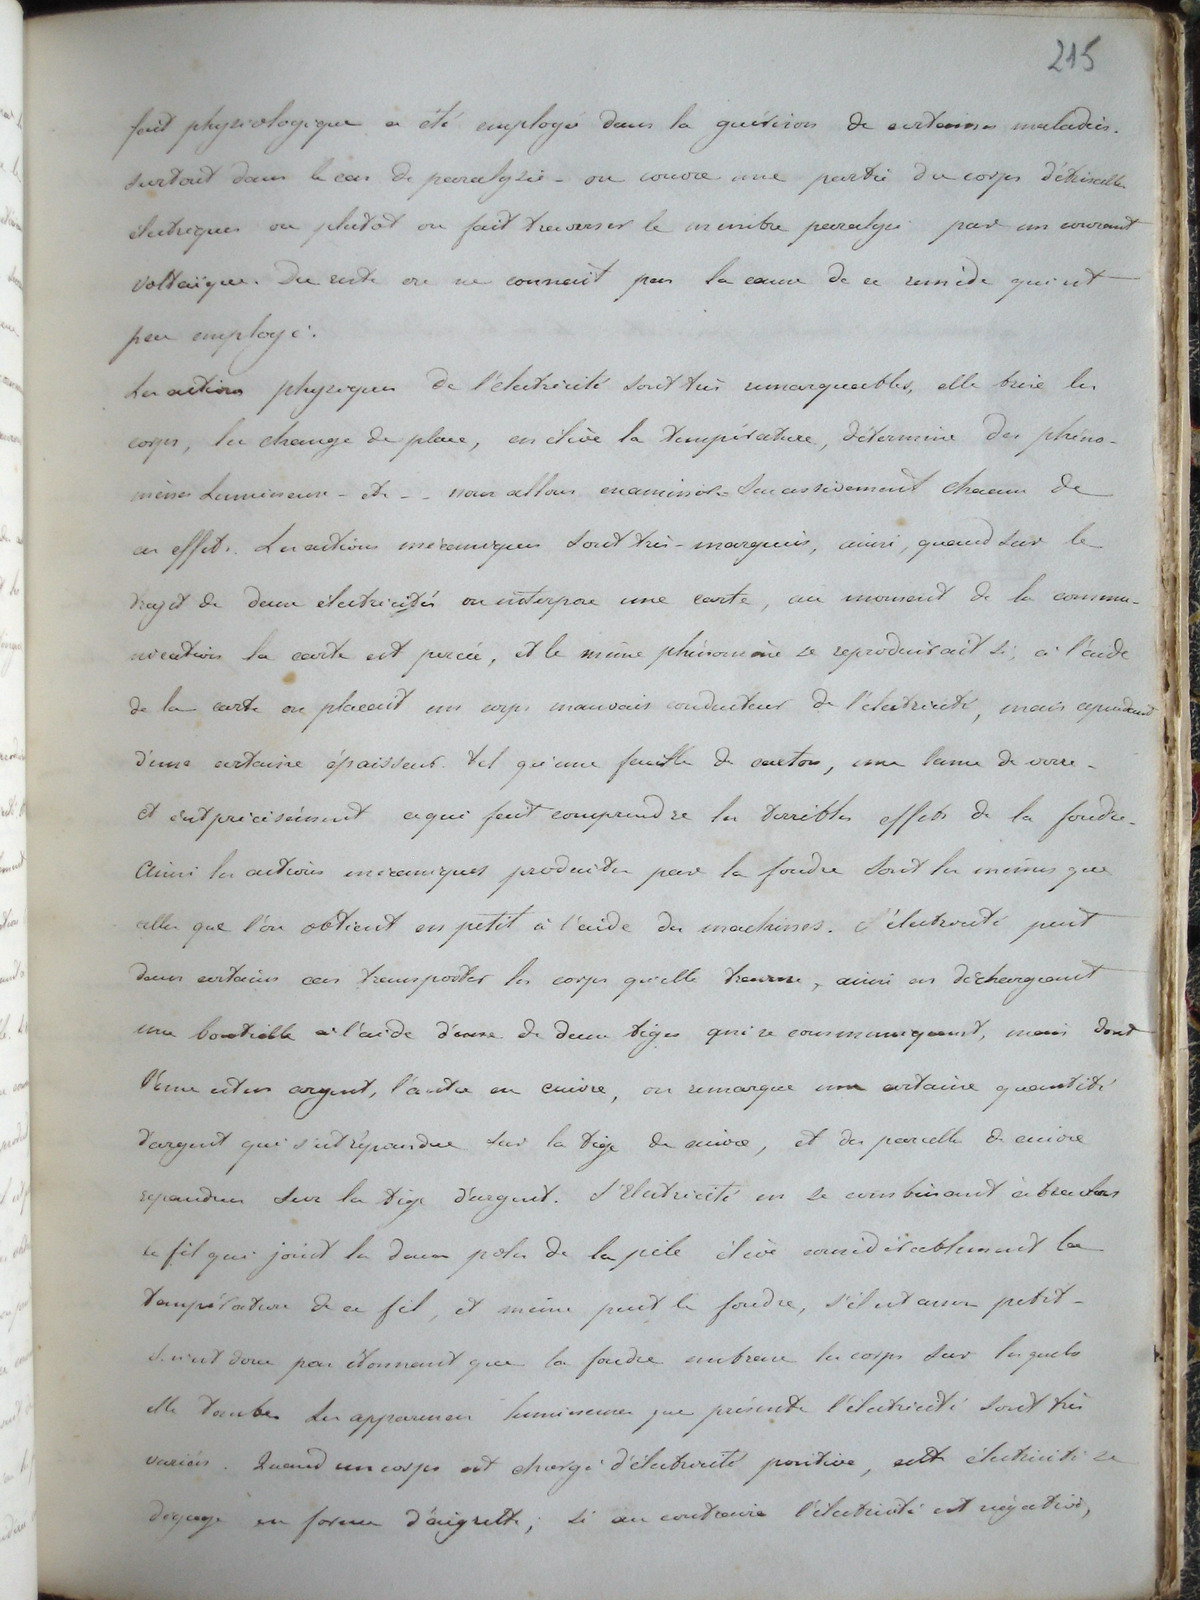 215
fait physiologique a été employé dans la guérison de certaines maladies.
surtout dans le cas de paralysie - on couvre une partie du corps d'étincelles
électriques ou plutôt on fait traverser le membre paralysé par un courant
voltaïque. Du reste on ne connait pas la cause de ce remède qui est
peu employé.
Les actions physiques de l'électricité sont très remarquables, elle brise les
corps, les change de place, en élève la température, détermine des phéno-
mènes lumineux - etc - - nous allons examiner successivement chacun de
ces effets. Les actions mécaniques sont très-marquées, ainsi, quand sur le
trajet de deux électricités on interpose une carte, au moment de la commu-
nication la carte est percée, et le même phénomène se reproduirait si, à l'aide
de la carte on placait un corps mauvais conducteur de l'électricité, mais cependant
d'une certaine épaisseur. tel qu'une feuille de carton, une lame de verre -
et c'est précisément ce qui fait comprendre les terribles effets de la foudre -
Ainsi les actions mécaniques produites par la foudre sont les mêmes que
celles que l'on obtient en petit à l'aide des machines. L'électricité peut
dans certains cas transporter les corps qu'elle traverse, ainsi en déchargeant
une bouteille à l'aide d'une de deux tiges qui se communiquent, mais dont
l'une est en argent, l'autre en cuivre, on remarque une certaine quantité
d'argent qui s'est répandue sur la tige de cuivre, et des parcelles de cuivre
repandues sur la tige d'argent. L'électricité en se combinant à travers
le fil qui joint les deux poles de la pile élève considérablement la
température de ce fil, et même peut le fondre, s'il est assez petit -
il n'est donc pas étonnant que la foudre embrase les corps sur lesquels
elle tombe. Les apparences lumineuses que présente l'électricité sont très
variées. Quand un corps est chargé d'électricité positive, cette électricité se
dégage en forme d'aigrette; si au contraire l'électricité est négative,